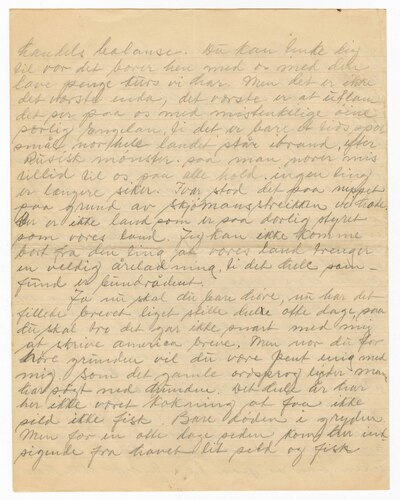 handels balanse. Du kan tenke dig
til vor det bærer hen med os med den
lave penge kurs vi har. Men det er ikke
det værste enda, det værste er at utlan
det ser paa os med mistenkelige øine
særlig Engelan, ti det er bare et tids spørs
mål når hele landet står ibrand, efter
Rusisk mønster. saa man nører mis
tillid til os paa alle hold, ingen ting
er længere siker. Ivar stod det paa
paa grund av sjømansstreikken
Der er ikke land som er saa dorlig styret
som vores land. Jeg kan ikke komme
bort fra den ting at vores land trenger
en veldig åreladning, ti det hele sam-
fund er
Ja nu skal du bare høre, nu har det
lillede brevet liget stille hele otte dage, saa
du skal tro det gar ikke snart med mig
at skrive america breve. Men nor du for
høre grunden vil du være pent enig med
mig som det gamle ordsprog lyder man
har stept med hunden. Det hele er har
her ikke været kokning at faa ikke
sild ikke fisk. Bare døden i gryden.
Men for en otte dage siden kom der ind
sigende fra havet lit sild og fisk